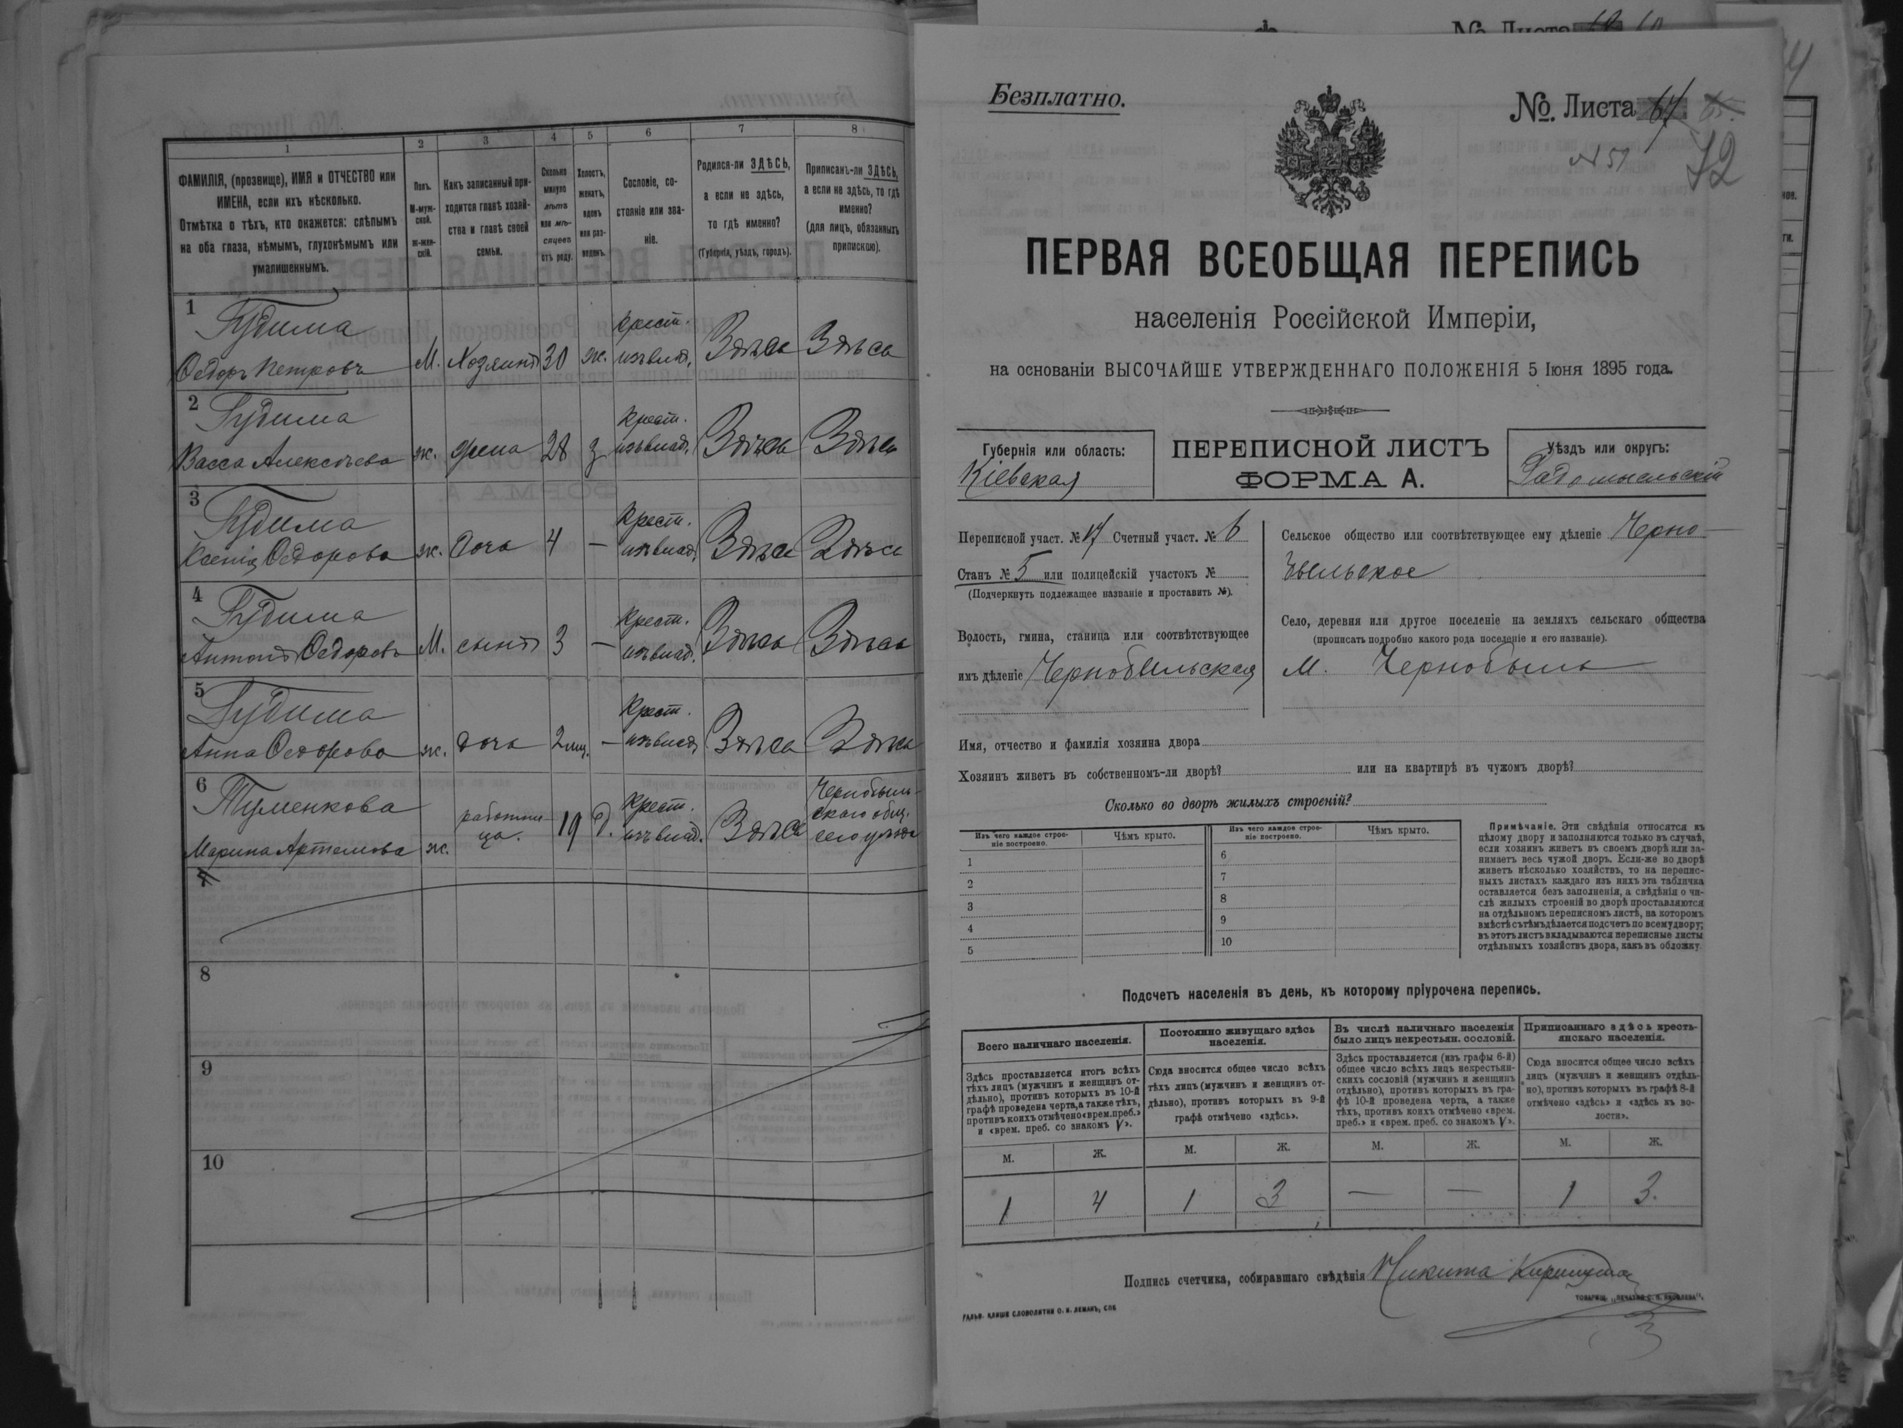 1
2
3
4
5
6
7
8
ФАМИЛІЯ, (прозвище), ИМЯ и ОТЧЕСТВО или
ИМЕНА, если ихъ нѣсколько.
Отмѣтка о тѣхъ, кто окажется: слѣпымъ
на оба глаза, нѣмымъ, глухонѣмымъ или
умалишеннымъ.
Полъ.
М-муж-
ской.
ж-жен-
скій.
Какъ записанный при-
ходится главѣ хозяй-
ства и главѣ своей
семьи.
Сколько
минуло
лѣтъ
или мѣ-
сяцевъ
отъ роду.
Холостъ,
женатъ,
вдовъ
или раз-
веденъ.
Сословіе, со-
стояніе или зва-
ніе.
Родился-ли ЗДѢСЬ,
а если не здѣсь,
то гдѣ именно?
(Губернія, уѣздъ, городъ).
Приписанъ-ли ЗДѢСЬ,
а если не здѣсь, то гдѣ
именно?
(для лицъ, обязанныхъ
припискою).
1
Гудима
Ѳедоръ Петровъ М. Хозяинъ 30 ж. Крест. изъ влад. Здѣсь Здѣсь
2
Гудима
Васса Алексѣева ж. жена 28 з Крест. изъ влад. Здѣсь Здѣсь
3
Гудима
Ксенія Ѳедорова ж. дочь 4 — Крест. изъ влад. Здѣсь Здѣсь
4
Гудима
Антонъ Ѳедоровъ М. сынъ 3 — Крест. изъ влад. Здѣсь Здѣсь
5
Гудима
Анна Ѳедорова ж. дочь 2 мц. — Крест. изъ влад. Здѣсь Здѣсь
6
Туменкова
Марина Артемова ж. работни-
ца. 19 д. Крест. изъ влад. Здѣсь Чернобыль-
скаго общ.
сего уѣзда
7
8
9
10
Безплатно.
№ Листа 64
№ 51
72
ПЕРВАЯ ВСЕОБЩАЯ ПЕРЕПИСЬ
населенія Россійской Имперіи,
на основаніи ВЫСОЧАЙШЕ УТВЕРЖДЕННАГО ПОЛОЖЕНІЯ 5 Іюня 1895 года.
Губернія или область:
Кіевская
ПЕРЕПИСНОЙ ЛИСТЪ
ФОРМА А.
Уѣздъ или округъ:
Радомысльскій
Переписной участ. № 17 Счетный участ. № 6
Станъ № 5 или полицейскій участокъ №
(Подчеркнуть подлежащее названіе и проставить №).
Волость, гмина, станица или соотвѣтствующее
имъ дѣленіе Чернобыльская
Сельское общество или соотвѣтствующее ему дѣленіе Черно-
быльское
Село, деревня или другое поселеніе на земляхъ сельскаго общества
(прописать подробно какого рода поселеніе и его названіе).
М. Чернобыль
Имя, отчество и фамилія хозяина двора
Хозяинъ живетъ въ собственномъ-ли дворѣ? или на квартирѣ въ чужомъ дворѣ?
Сколько во дворѣ жилыхъ строеній?
Изъ чего каждое строе-
ніе построено.
Чѣмъ крыто.
Изъ чего каждое строе-
ніе построено.
Чѣмъ крыто.
1
2
3
4
5
6
7
8
9
10
Примѣчаніе. Эти свѣдѣнія относятся къ
цѣлому двору и заполняются только въ случаѣ,
если хозяинъ живетъ въ своемъ дворѣ или за-
нимаетъ весь чужой дворъ. Если-же во дворѣ
живетъ нѣсколько хозяйствъ, то на перепис-
ныхъ листахъ каждаго изъ нихъ эта табличка
оставляется безъ заполненія, а свѣдѣнія о чи-
слѣ жилыхъ строеній во дворѣ проставляются
на отдѣльномъ переписномъ листѣ, на которомъ
вмѣстѣ съ тѣмъ дѣлается подсчетъ по всему двору;
въ этотъ листъ вкладываются переписные листы
отдѣльныхъ хозяйствъ двора, какъ въ обложку.
Подсчетъ населенія въ день, къ которому пріурочена перепись.
Всего наличнаго населенія.
Здѣсь проставляется итогъ всѣхъ
тѣхъ лицъ (мужчинъ и женщинъ от-
дѣльно), противъ которыхъ въ 10-й
графѣ проведена черта, а также тѣхъ,
противъ коихъ отмѣчено «врем. преб.»
и «врем. преб. со знакомъ V».
Постоянно живущаго здѣсь
населенія.
Сюда вносится общее число всѣхъ
тѣхъ лицъ (мужчинъ и женщинъ от-
дѣльно), противъ которыхъ въ 9-й
графѣ отмѣчено «здѣсь».
Въ числѣ наличнаго населенія
было лицъ некрестьян. сословій.
Здѣсь проставляется (изъ графы 6-й)
общее число всѣхъ лицъ некрестьян-
скихъ сословій (мужчинъ и женщинъ
отдѣльно), противъ которыхъ въ гра-
фѣ 10-й проведена черта, а также
тѣхъ, противъ коихъ отмѣчено «врем.
преб.» и «врем. преб. со знакомъ V».
Приписаннаго здѣсь кресть-
янскаго населенія.
Сюда вносится общее число всѣхъ
лицъ (мужчинъ и женщинъ отдѣль-
но), противъ которыхъ въ графѣ 8-й
отмѣчено «здѣсь» и «здѣсь въ во-
лости».
М. Ж. М. Ж. М. Ж. М. Ж.
1 4 1 3 — — 1 3.
Подпись счетчика, собиравшаго свѣдѣнія Никита
ГАЛЬВ. КЛИШЕ СЛОВОЛИТНИ О. И. ЛЕМАНЪ, СПБ.